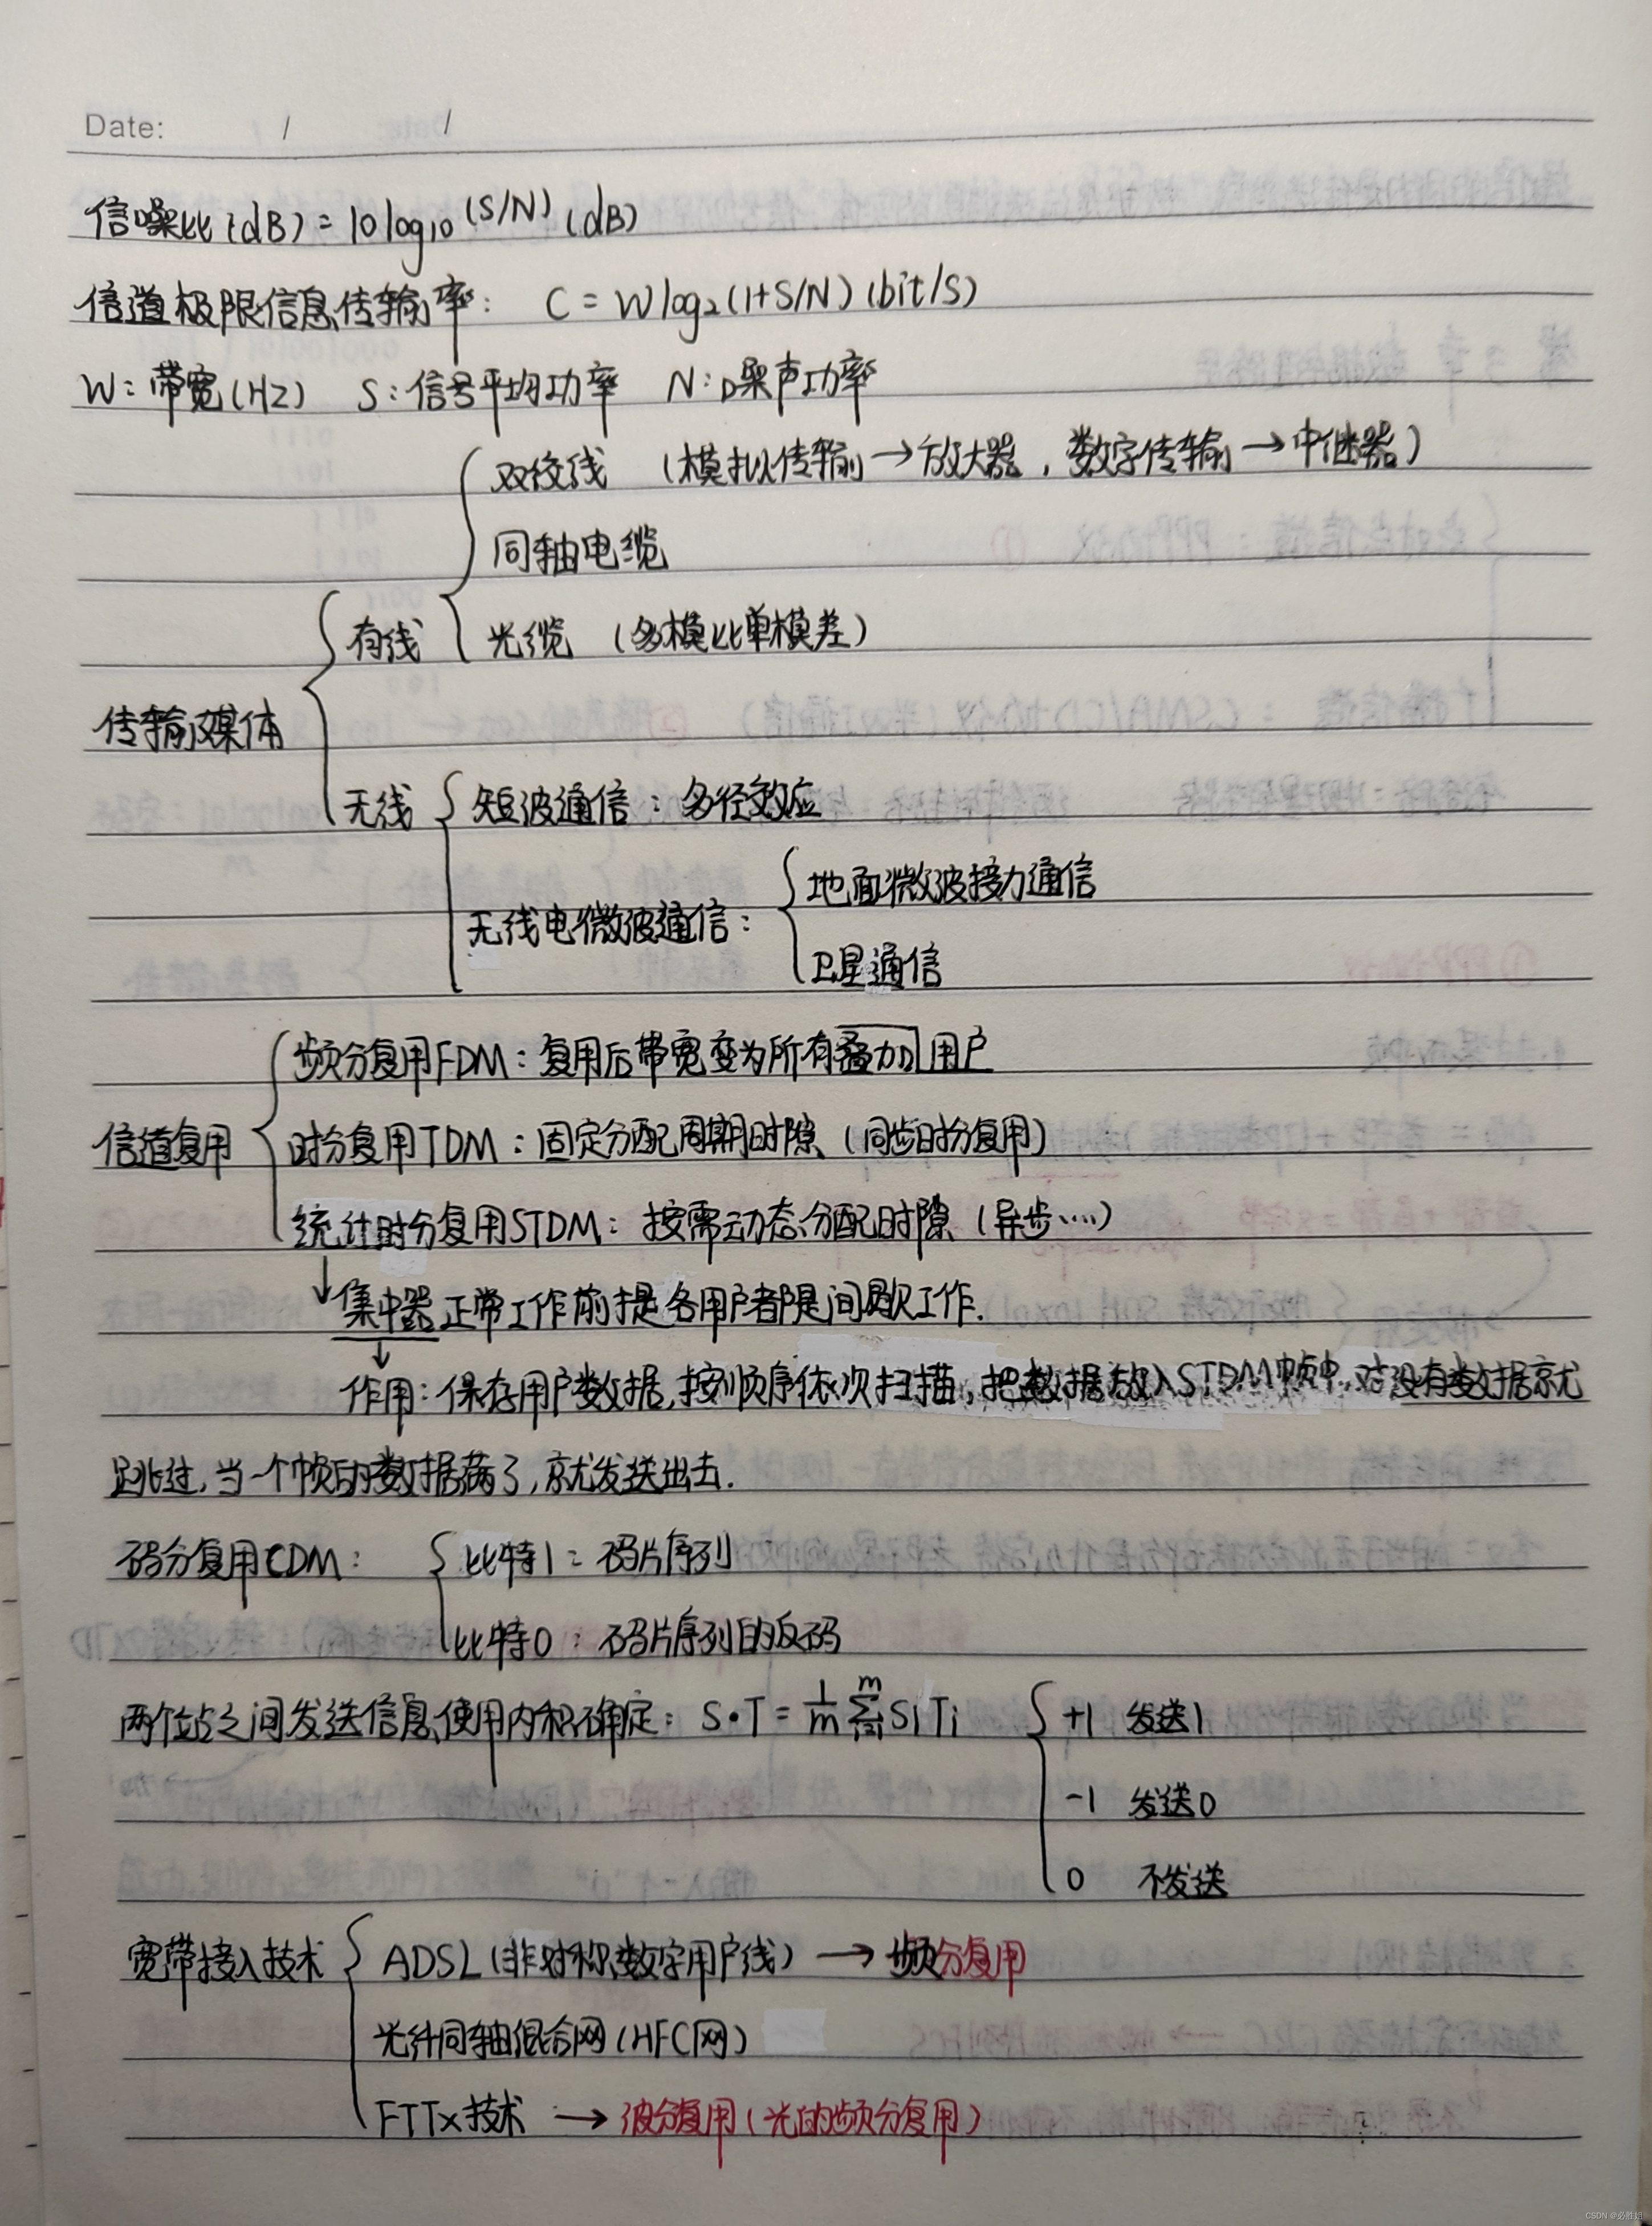 Date: / /
信噪比(dB) = 10 log10 (S/N) (dB)
信道极限信息传输率: C = W log2 (1+S/N) (bit/s)
W: 带宽(Hz) S: 信号平均功率 N: 噪声功率
双绞线 (模拟传输→放大器, 数字传输→中继器)
同轴电缆
有线 { 光缆 (多模比单模差)
传输媒体
无线 { 短波通信: 多径效应
地面微波接力通信
无线电微波通信: {
卫星通信
频分复用FDM: 复用后带宽变为所有叠加用户
信道复用 { 时分复用TDM: 固定分配周期时隙 (同步时分复用)
统计时分复用STDM: 按需动态分配时隙 (异步....)
↓集中器正常工作前提各用户都是间歇工作.
↓作用: 保存用户数据,按顺序依次扫描,把数据放入STDM帧中,对没有数据就
跳过,当一个帧的数据满了,就发送出去.
码分复用CDM: { 比特1: 码片序列
比特0: 码片序列的反码
两个站之间发送信息使用内积确定: S•T = 1/m ∑(i=1→m) SiTi { +1 发送1
-1 发送0
0 不发送
宽带接入技术 { ADSL (非对称数字用户线) → 频分复用
光纤同轴混合网 (HFC网)
FTTx技术 → 波分复用 (光的频分复用)
CSDN @必胜班